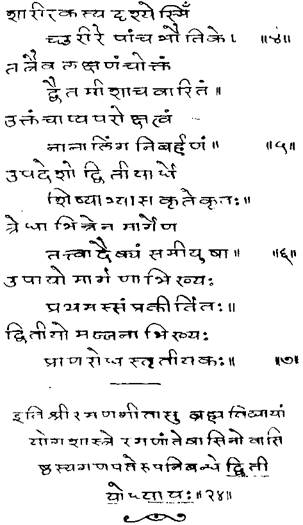 शारीरकस्य दृश्येस्मिँ
च्छरीरे पांचभौतिके। ॥४॥
तत्रैव लक्षणंचोक्तं
द्वैतमीशाच वारितं॥
उक्तंचाप्यपरोक्षत्वं
नानालिंगनिबर्हणं॥ ॥५॥
उपदेशोद्वितीयार्धे
शिष्याभ्यासकृतेकृतः॥
त्रेधाभिन्नेन मार्गेण
तत्त्वादैक्यं समीयुषा॥ ॥६॥
उपायोमार्गणाभिख्यः
प्रथमस्संप्रकीर्तितः॥
द्वितीयोमज्जनाभिख्यः
प्राणरोधस्तृतीयकः॥ ॥७॥
इतिश्रीरमणगीतासु ब्रह्मविद्यायां
योगशास्त्रे रमणांतेवासिनो वासि
ष्ठस्यगणपतेरुपनिबन्धे द्विती
योध्यायः॥२४॥